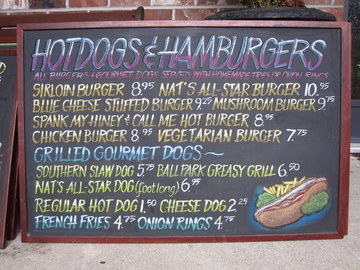 HOTDOGS & HAMBURGERS
ALL BURGERS & GOURMET DOGS SERVED WITH HOMEMADE FRIES OR ONION RINGS
SIRLOIN BURGER 8.95 NAT'S ALL-STAR BURGER 10.95
BLUE CHEESE STUFFED BURGER 9.25 MUSHROOM BURGER 9.75
SPANK MY-HINEY & CALL ME HOT BURGER 8.95
CHICKEN BURGER 8.95 VEGETARIAN BURGER 7.75
GRILLED GOURMET DOGS ~
SOUTHERN SLAW DOG 5.75 BALLPARK GREASY GRILL 6.50
NAT'S ALL-STAR DOG (footlong) 6.95
REGULAR HOT DOG 1.50 CHEESE DOG 2.25
FRENGH FRIES 4.75 ONION RINGS 4.75